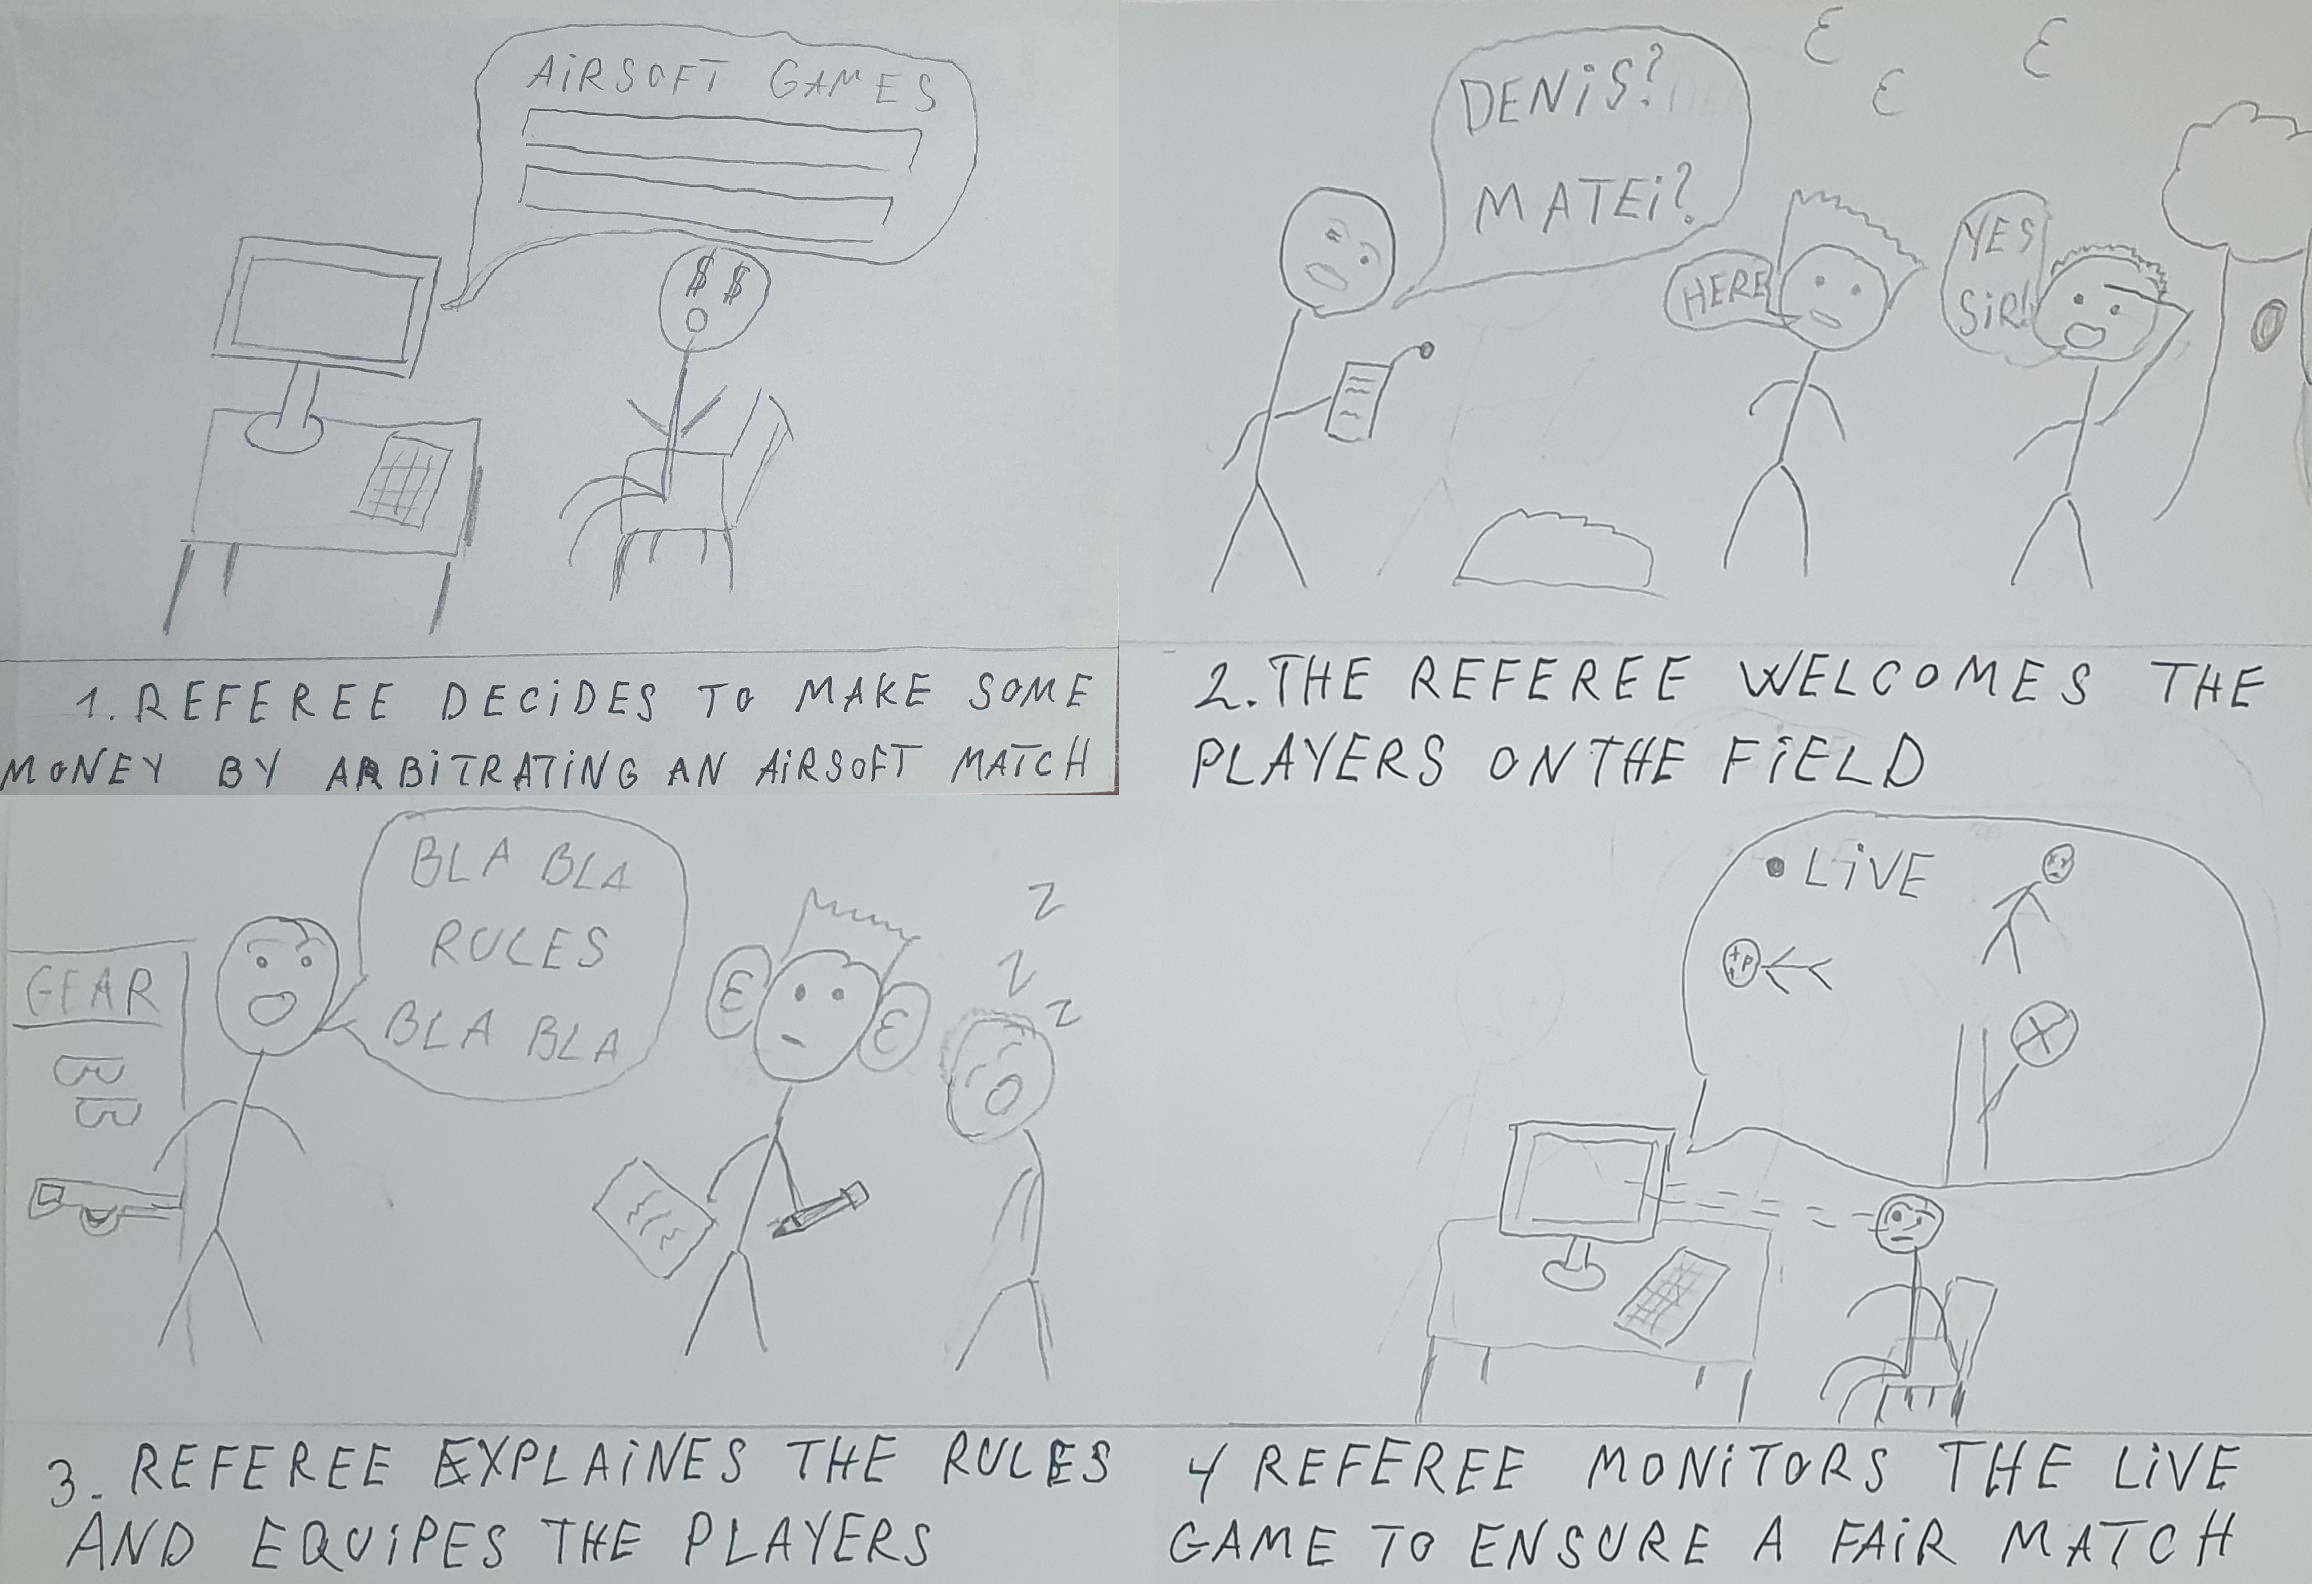 AiRSOFT GAMES
$ $
1. REFEREE DECiDES TO MAKE SOME
MONEY BY ARBiTRATiNG AN AiRSOFT MATCH
DENiS?
MATEi?
HERE
YES
SiR!
2. THE REFEREE WELCOMES THE
PLAYERS ON THE FiELD
BLA BLA
RULES
BLA BLA
GEAR
Z
Z
Z
3. REFEREE EXPLAiNES THE RULES
AND EQUiPES THE PLAYERS
LiVE
4 REFEREE MONiTORS THE LiVE
GAME TO ENSURE A FAiR MATCH